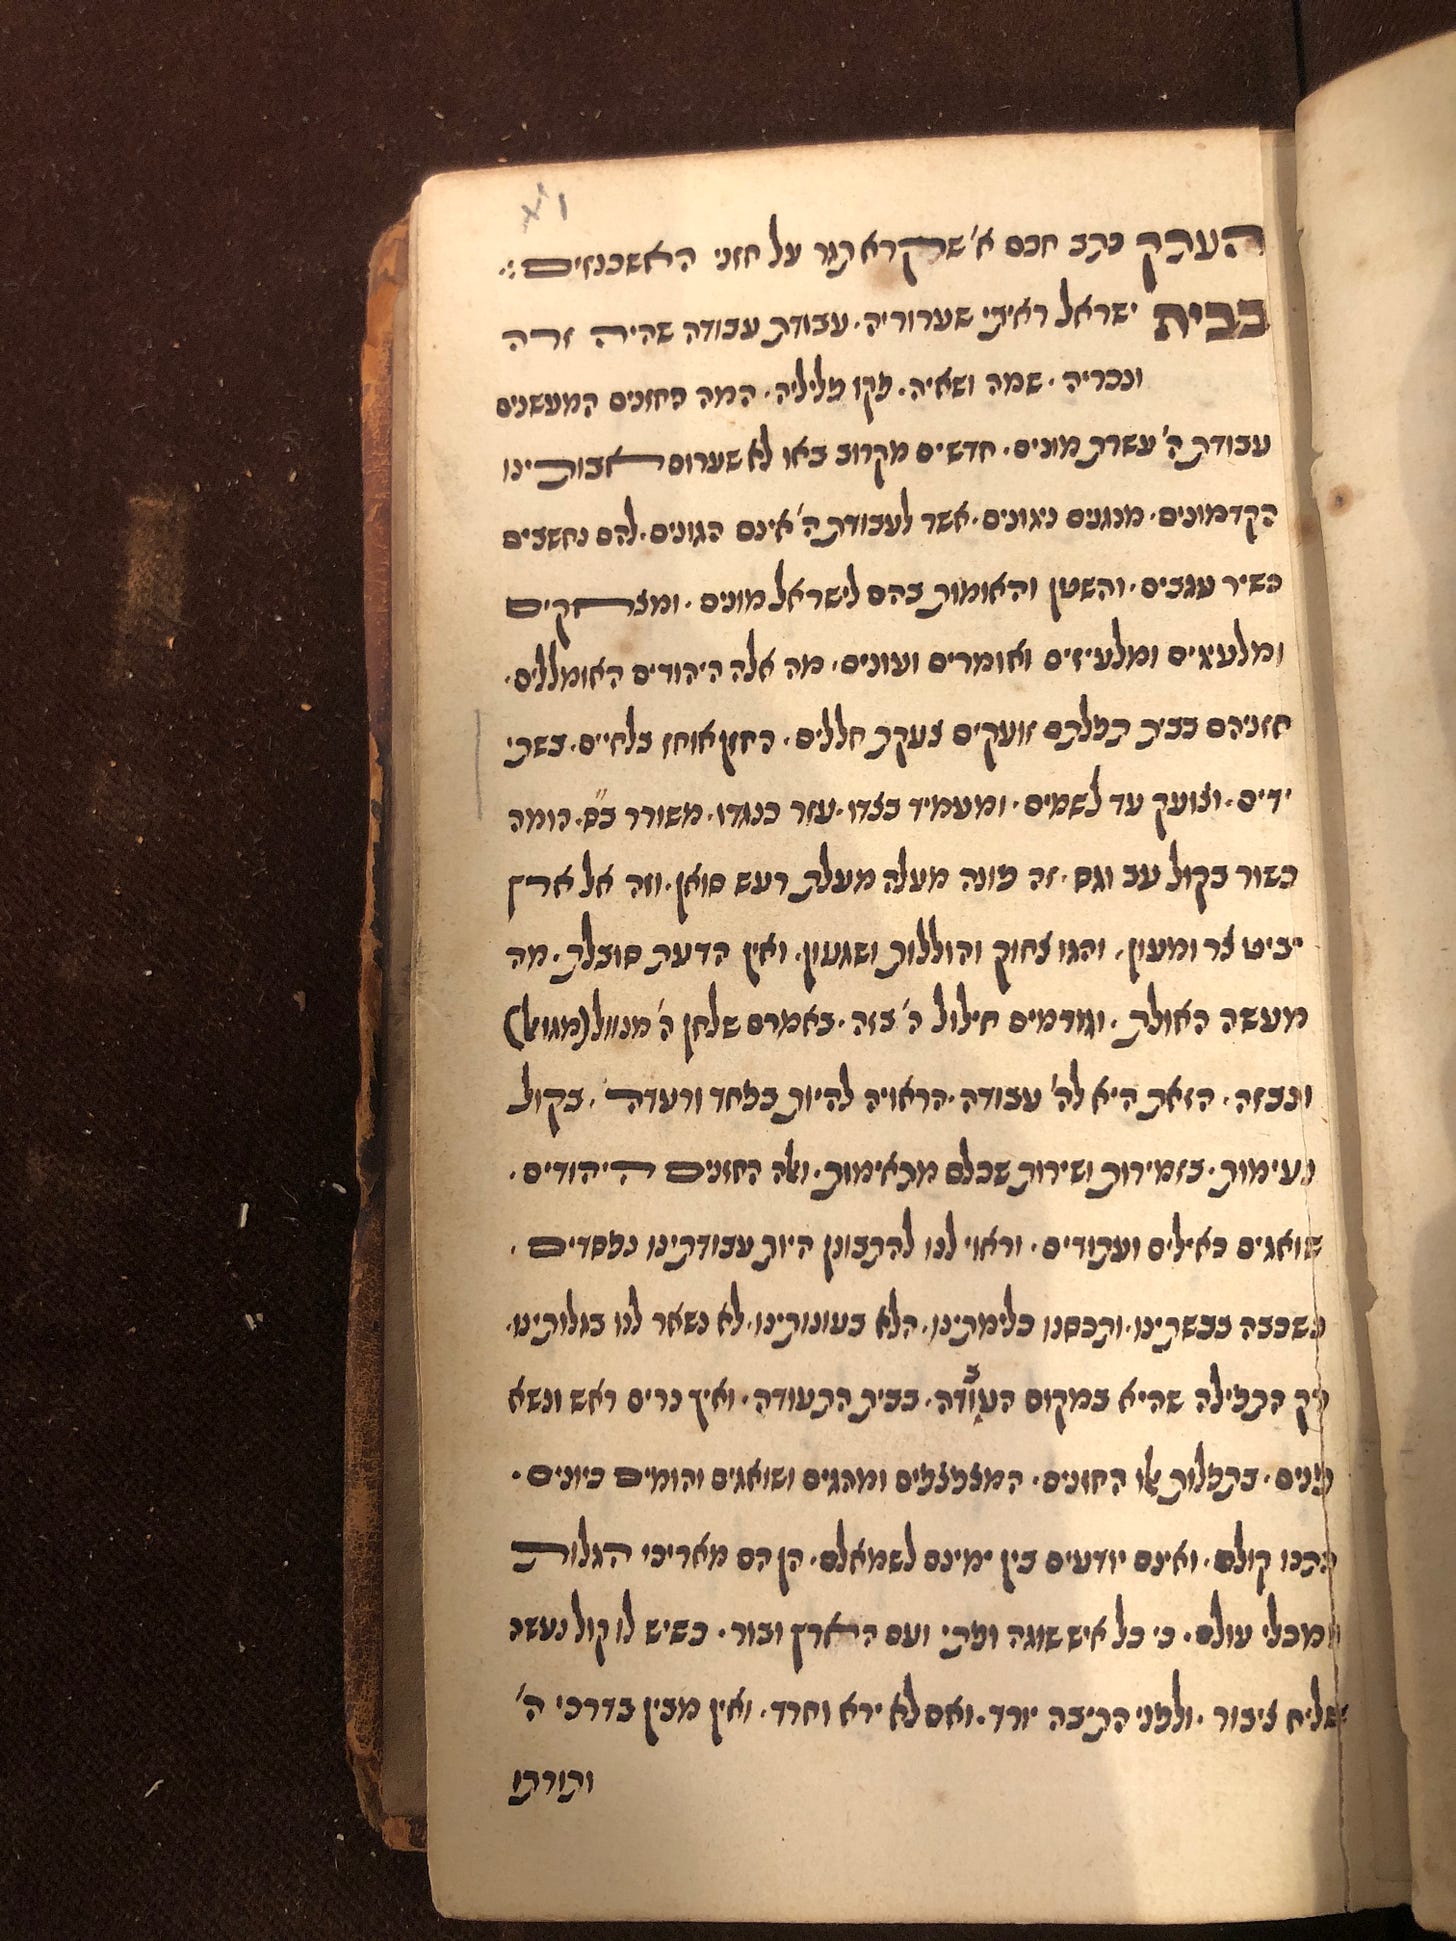 העתק כתב חכם א' שקרא תגר על חזני האשכנזים :.
בבית ישראל ראיתי שערוריה. עבודת עבודה שהיא זרה
ונכריה. שמה ושאיה. פקו פליליה. המה החזנים המעשנים
עבודת ה' עשרת מונים. חדשים מקרוב באו לא שערום אבותינו
הקדמונים. מנגנים ניגונים. אשר לעבודת ה' אינם הגונים. להם נחשבים
כשיר עגבים. והשטן והאומות בהם לישראל מונים. ומצחקים
ומלעיגים ומלעיזים ואומרים ועונים. מה אלה היהודים האומללים.
חזניהם בבית תפלתם זועקים צעקת חללים. החזן אוחז בלחיים. בשתי
ידים. וצועק עד לשמים. ומעמיד בצדו. עזר כנגדו. משורר ב"ס. הומה
כשור בקול עב וגס. זה פונה מעלה מעלת רעש סואן. וזה אל ארץ
יביט צר ומעון. והגו צחוק והוללות ושגעון. ואין הדעת סובלת. מה
מעשה האולת. וגורמים חילול ה' בזה. באמרם שלחן ה' מנוול (מגואל)
ונבזה. הזאת היא לה' עבודה. הראויה להיות בפחד ורעדה. בקול
נעימות. בזמירות ושירות שכלם מתאימות. ואלה החזנים היהודים.
שואגים כאילים ועתודים. וראוי לנו להתבונן היות עבודתינו נפסדים.
נשכבה בבשתינו. ותכסנו כלימתינו. הלא בעונותינו. לא נשאר לנו בגלותינו.
רק התפילה שהיא במקום העבודה. בבית התעודה. ואיך נרים ראש ונשא
פנים. בתפלות אלו החזנים. המצפצפים ומהגים ושואגים והומים כיונים.
נתנו קולם. ואינם יודעים בין ימינם לשמאלם. הן הם מאריכי הגלות
ומכלי עולם. כי כל איש שוגה ופתי ועם הארץ ובור. כשיש לו קול נעשה
שליח ציבור. ולפני התיבה יורד. ואם לא ירא וחרד. ואין מבין בדרכי ה'
ותורתו